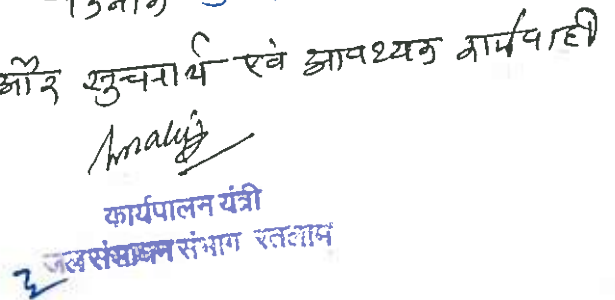 और सुचनार्थ एवं आवश्यक कार्यवाही
कार्यपालन यंत्री
जल संसाधन संभाग रतलाम